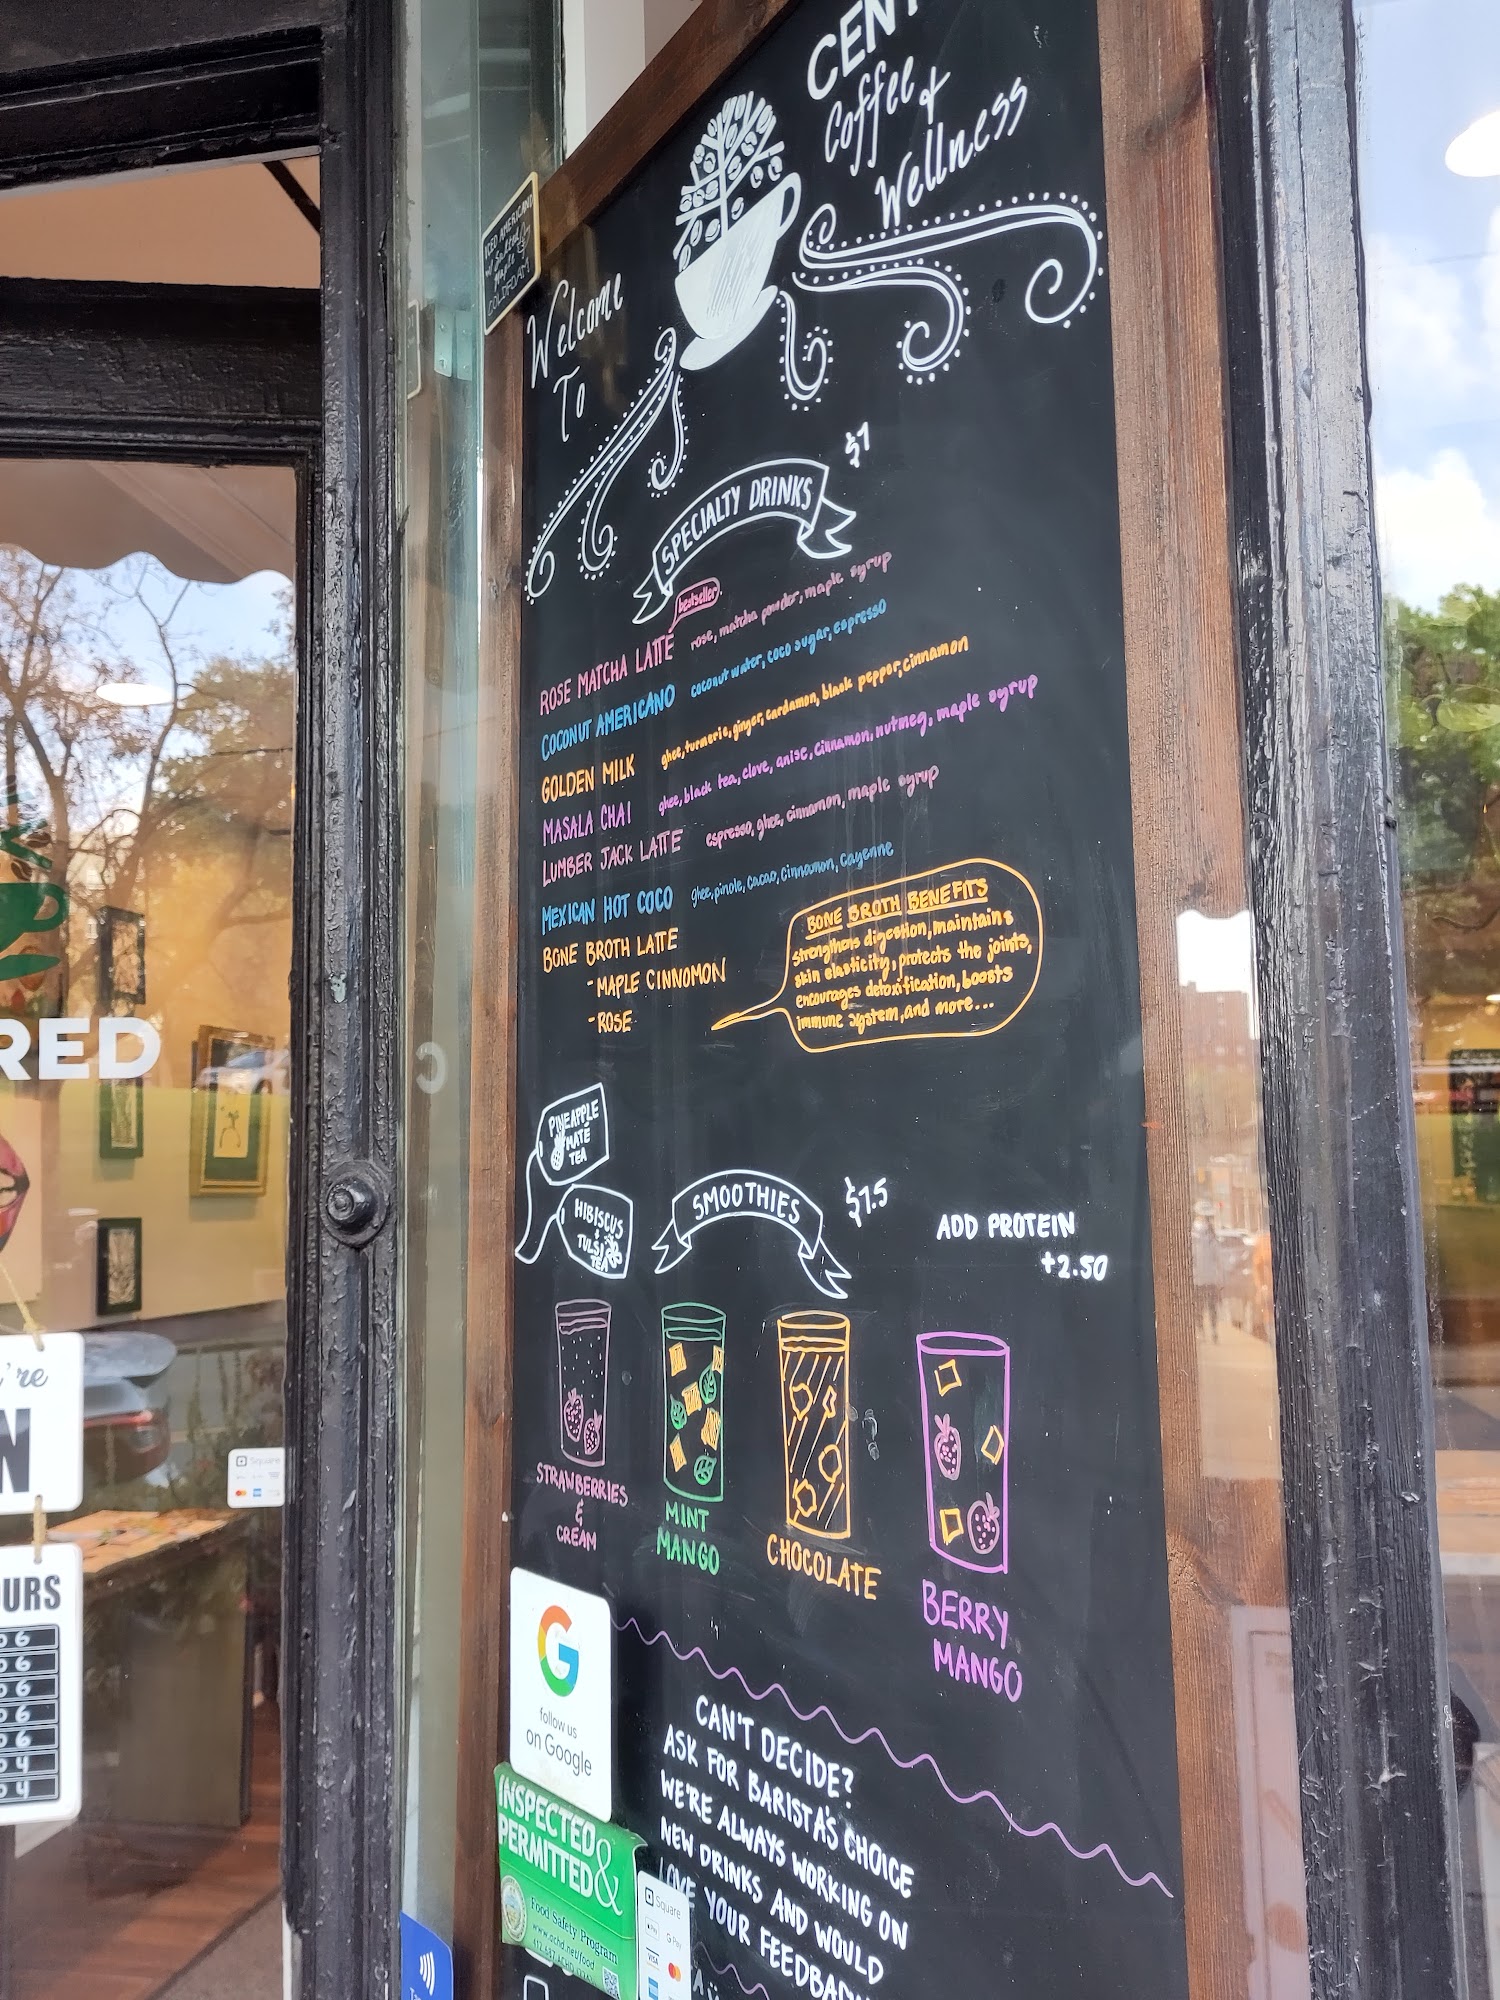 CENT
Coffee &
Wellness
ICED AMERICANO
Welcome
To
SPECIALTY DRINKS
$7
bestseller
ROSE MATCHA LATTE rose, matcha powder, maple syrup
COCONUT AMERICANO coconut water, coco sugar, espresso
GOLDEN MILK ghee, turmeric, ginger, cardamon, black pepper, cinnamon
MASALA CHAI ghee, black tea, clove, anise, cinnamon, nutmeg, maple syrup
LUMBER JACK LATTE espresso, ghee, cinnamon, maple syrup
MEXICAN HOT COCO ghee, pinole, cacao, cinnamon, cayenne
BONE BROTH LATTE
-MAPLE CINNOMON
-ROSE
BONE BROTH BENEFITS
strengthens digestion, maintains
skin elasticity, protects the joints,
encourages detoxification, boosts
immune system, and more...
RED
PINEAPPLE
MATE
TEA
HIBISCUS
&
TULSI
TEA
SMOOTHIES
$7.5
ADD PROTEIN
+2.50
STRAWBERRIES
&
CREAM
MINT
MANGO
CHOCOLATE
BERRY
MANGO
're
N
Square
OURS
G
follow us
on Google
CAN'T DECIDE?
ASK FOR BARISTA'S CHOICE
WE'RE ALWAYS WORKING ON
NEW DRINKS AND WOULD
LOVE YOUR FEEDBACK
INSPECTED &
PERMITTED
Food Safety Program
www.achd.net/food
Square
G Pay
VISA